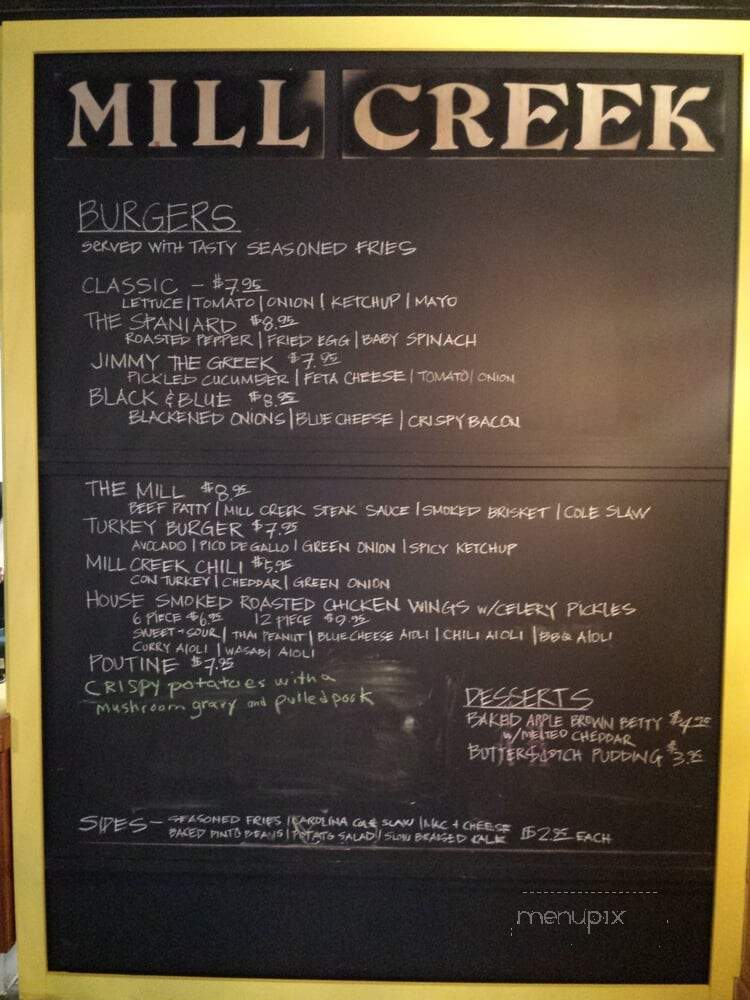 MILL CREEK
BURGERS
SERVED WITH TASTY SEASONED FRIES
CLASSIC - $7.95
LETTUCE | TOMATO | ONION | KETCHUP | MAYO
THE SPANIARD $8.95
ROASTED PEPPER | FRIED EGG | BABY SPINACH
JIMMY THE GREEK $7.95
PICKLED CUCUMBER | FETA CHEESE | TOMATO | ONION
BLACK & BLUE $8.95
BLACKENED ONIONS | BLUE CHEESE | CRISPY BACON
THE MILL $8.95
BEEF PATTY | MILL CREEK STEAK SAUCE | SMOKED BRISKET | COLE SLAW
TURKEY BURGER $7.95
AVOCADO | PICO DE GALLO | GREEN ONION | SPICY KETCHUP
MILL CREEK CHILI $5.95
CON TURKEY | CHEDDAR | GREEN ONION
HOUSE SMOKED ROASTED CHICKEN WINGS W/CELERY PICKLES
6 PIECE $6.95 12 PIECE $9.95
SWEET + SOUR | THAI PEANUT | BLUE CHEESE AIOLI | CHILI AIOLI | BBQ AIOLI
CURRY AIOLI | WASABI AIOLI
POUTINE $7.95
CRISPY potatoes with a
mushroom gravy and pulled pork
DESSERTS
BAKED APPLE BROWN BETTY $4.25
W/MELTED CHEDDAR
BUTTERSCOTCH PUDDING $3.75
SIDES - SEASONED FRIES | CAROLINA COLE SLAW | MAC + CHEESE
BAKED PINTO BEANS | POTATO SALAD | SLOW BRAISED KALE $2.95 EACH
menupix